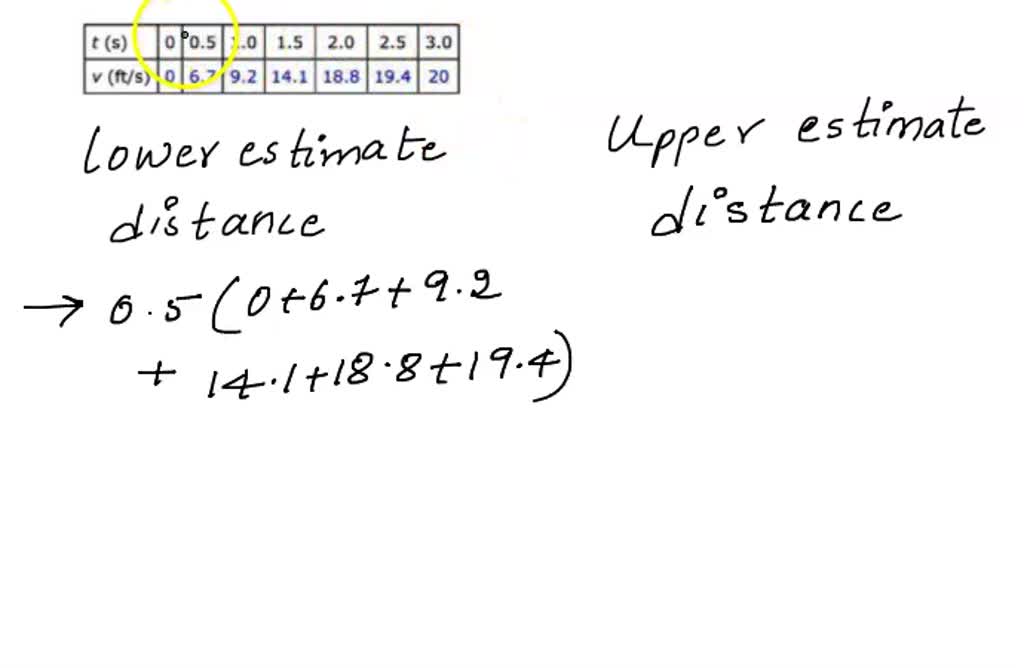 t (s) 0 0.5 1.0 1.5 2.0 2.5 3.0
v (ft/s) 0 6.7 9.2 14.1 18.8 19.4 20
Lower estimate
distance
Upper estimate
distance
→ 0.5 (0+6.7+9.2
+ 14.1+18.8+19.4)